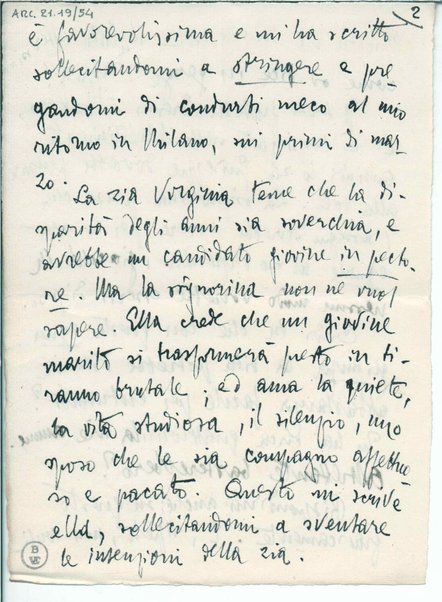 ARC. 21.19/54
2
è favorevolissima e mi ha scritto
sollecitandomi a stringere e pre-
gandomi di condurti meco al mio
ritorno in Milano, sui primi di mar-
zo.
La zia Virginia teme che la di-
sparità degli anni sia soverchia, e
avrebbe un candidato giovine in pecto-
re. Ma la signorina non ne vuol
sapere. Ella crede che un giovine
marito si trasformerà presto in ti-
ranno brutale; ed ama la quiete,
la vita studiosa, il silenzio, uno
sposo che le sia compagno affettuo-
so e pacato. Questo mi scrive
ella, sollecitandomi a sventare
le intenzioni della zia.